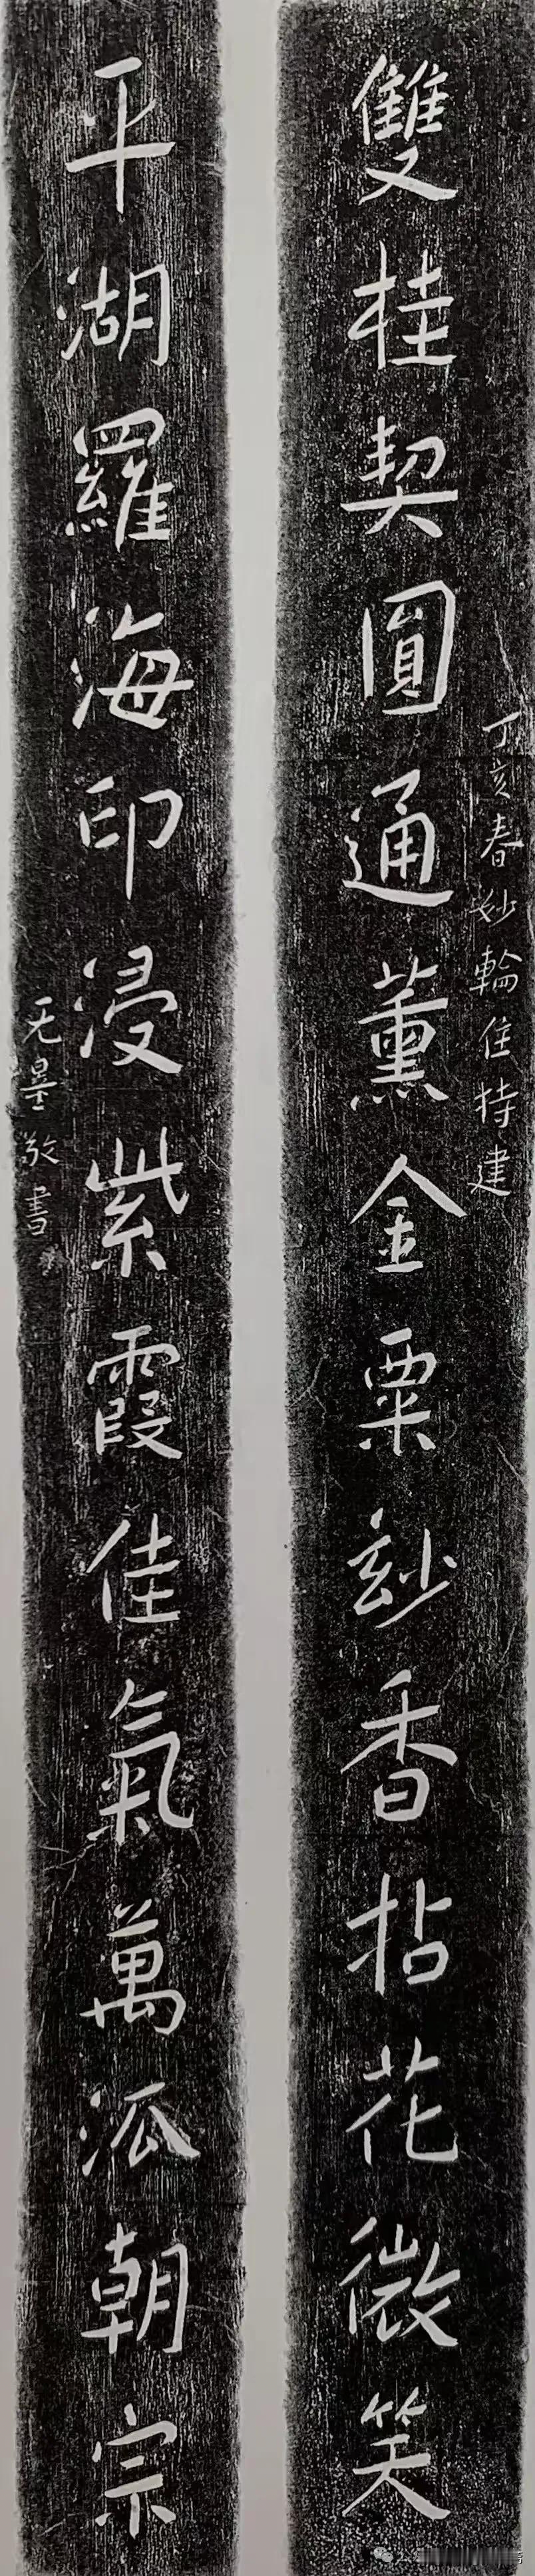 丁亥春妙輪住持建
雙桂契圓通薰金粟玅香拈花微笑
平湖羅海印浸紫霞佳氣萬泒朝宗
敬書